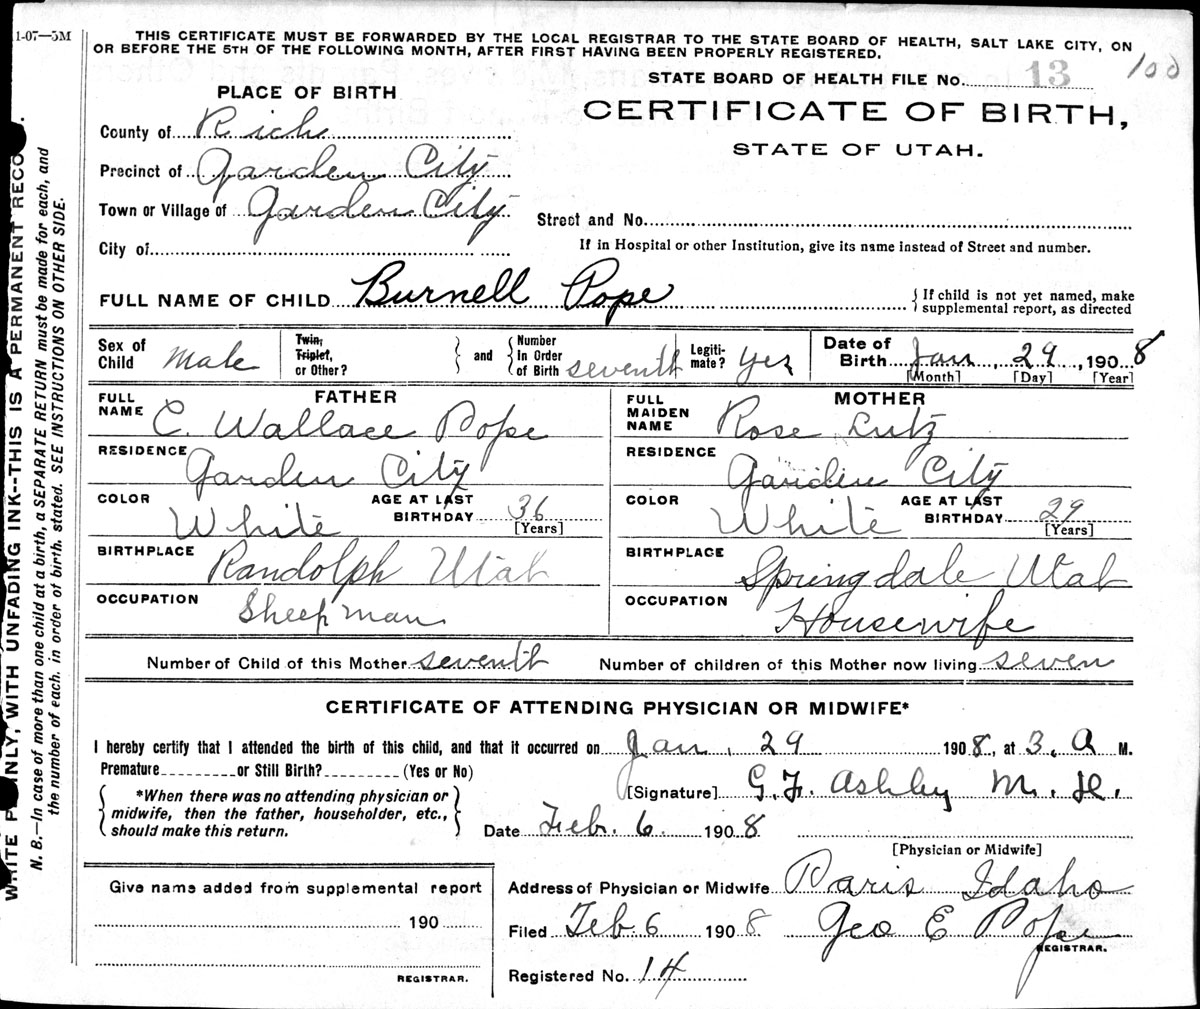 1-07—5M
THIS CERTIFICATE MUST BE FORWARDED BY THE LOCAL REGISTRAR TO THE STATE BOARD OF HEALTH, SALT LAKE CITY, ON
OR BEFORE THE 5TH OF THE FOLLOWING MONTH, AFTER FIRST HAVING BEEN PROPERLY REGISTERED.
100
STATE BOARD OF HEALTH FILE No. 13
PLACE OF BIRTH
CERTIFICATE OF BIRTH,
STATE OF UTAH.
County of Rich
Precinct of Garden City
Town or Village of Garden City
Street and No.
City of
If in Hospital or other Institution, give its name instead of Street and number.
FULL NAME OF CHILD Burnell Pope
{If child is not yet named, make
supplemental report, as directed
Sex of Child Male
Twin, Triplet, or Other?
} and { Number In Order of Birth seventh
Legiti-mate? yes
Date of Birth Jan, 29, 1908
[Month] [Day] [Year]
FATHER
FULL NAME C. Wallace Pope
RESIDENCE Garden City
COLOR White
AGE AT LAST BIRTHDAY 36 [Years]
BIRTHPLACE Randolph Utah
OCCUPATION Sheep man
MOTHER
FULL MAIDEN NAME Rose Lutz
RESIDENCE Garden City
COLOR White
AGE AT LAST BIRTHDAY 29 [Years]
BIRTHPLACE Springdale Utah
OCCUPATION Housewife
Number of Child of this Mother seventh Number of children of this Mother now living seven
CERTIFICATE OF ATTENDING PHYSICIAN OR MIDWIFE*
I hereby certify that I attended the birth of this child, and that it occurred on Jan, 29 1908, at 3. A M.
Premature or Still Birth? (Yes or No)
{ *When there was no attending physician or
midwife, then the father, householder, etc.,
should make this return. }
[Signature] G. F. Ashley M. D.
Date Feb. 6 1908
[Physician or Midwife]
Give name added from supplemental report
190
REGISTRAR.
Address of Physician or Midwife Paris Idaho
Filed Feb 6 1908 Geo E Pope
REGISTRAR.
Registered No. 14
WRITE PLAINLY, WITH UNFADING INK--THIS IS A PERMANENT RECO
N. B.—In case of more than one child at a birth, a SEPARATE RETURN must be made for each, and
the number of each, in order of birth, stated. SEE INSTRUCTIONS ON OTHER SIDE.